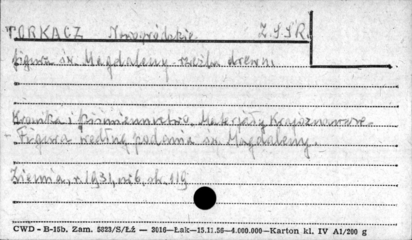 TORKACZ Nowogródzkie Z.S.S.R.
figura św. Magdaleny rzeźba drewn.
Kronika i piśmiennictwo. Materjały Krajoznawcze.
- Figura według podania św. Magdaleny.
Ziemia, r. 1931, nr 6, str. 119
CWD - B-15b. Zam. 5823/S/Łź — 3016—Łak—15.11.56—4.000.000—Karton kl. IV A1/200 g